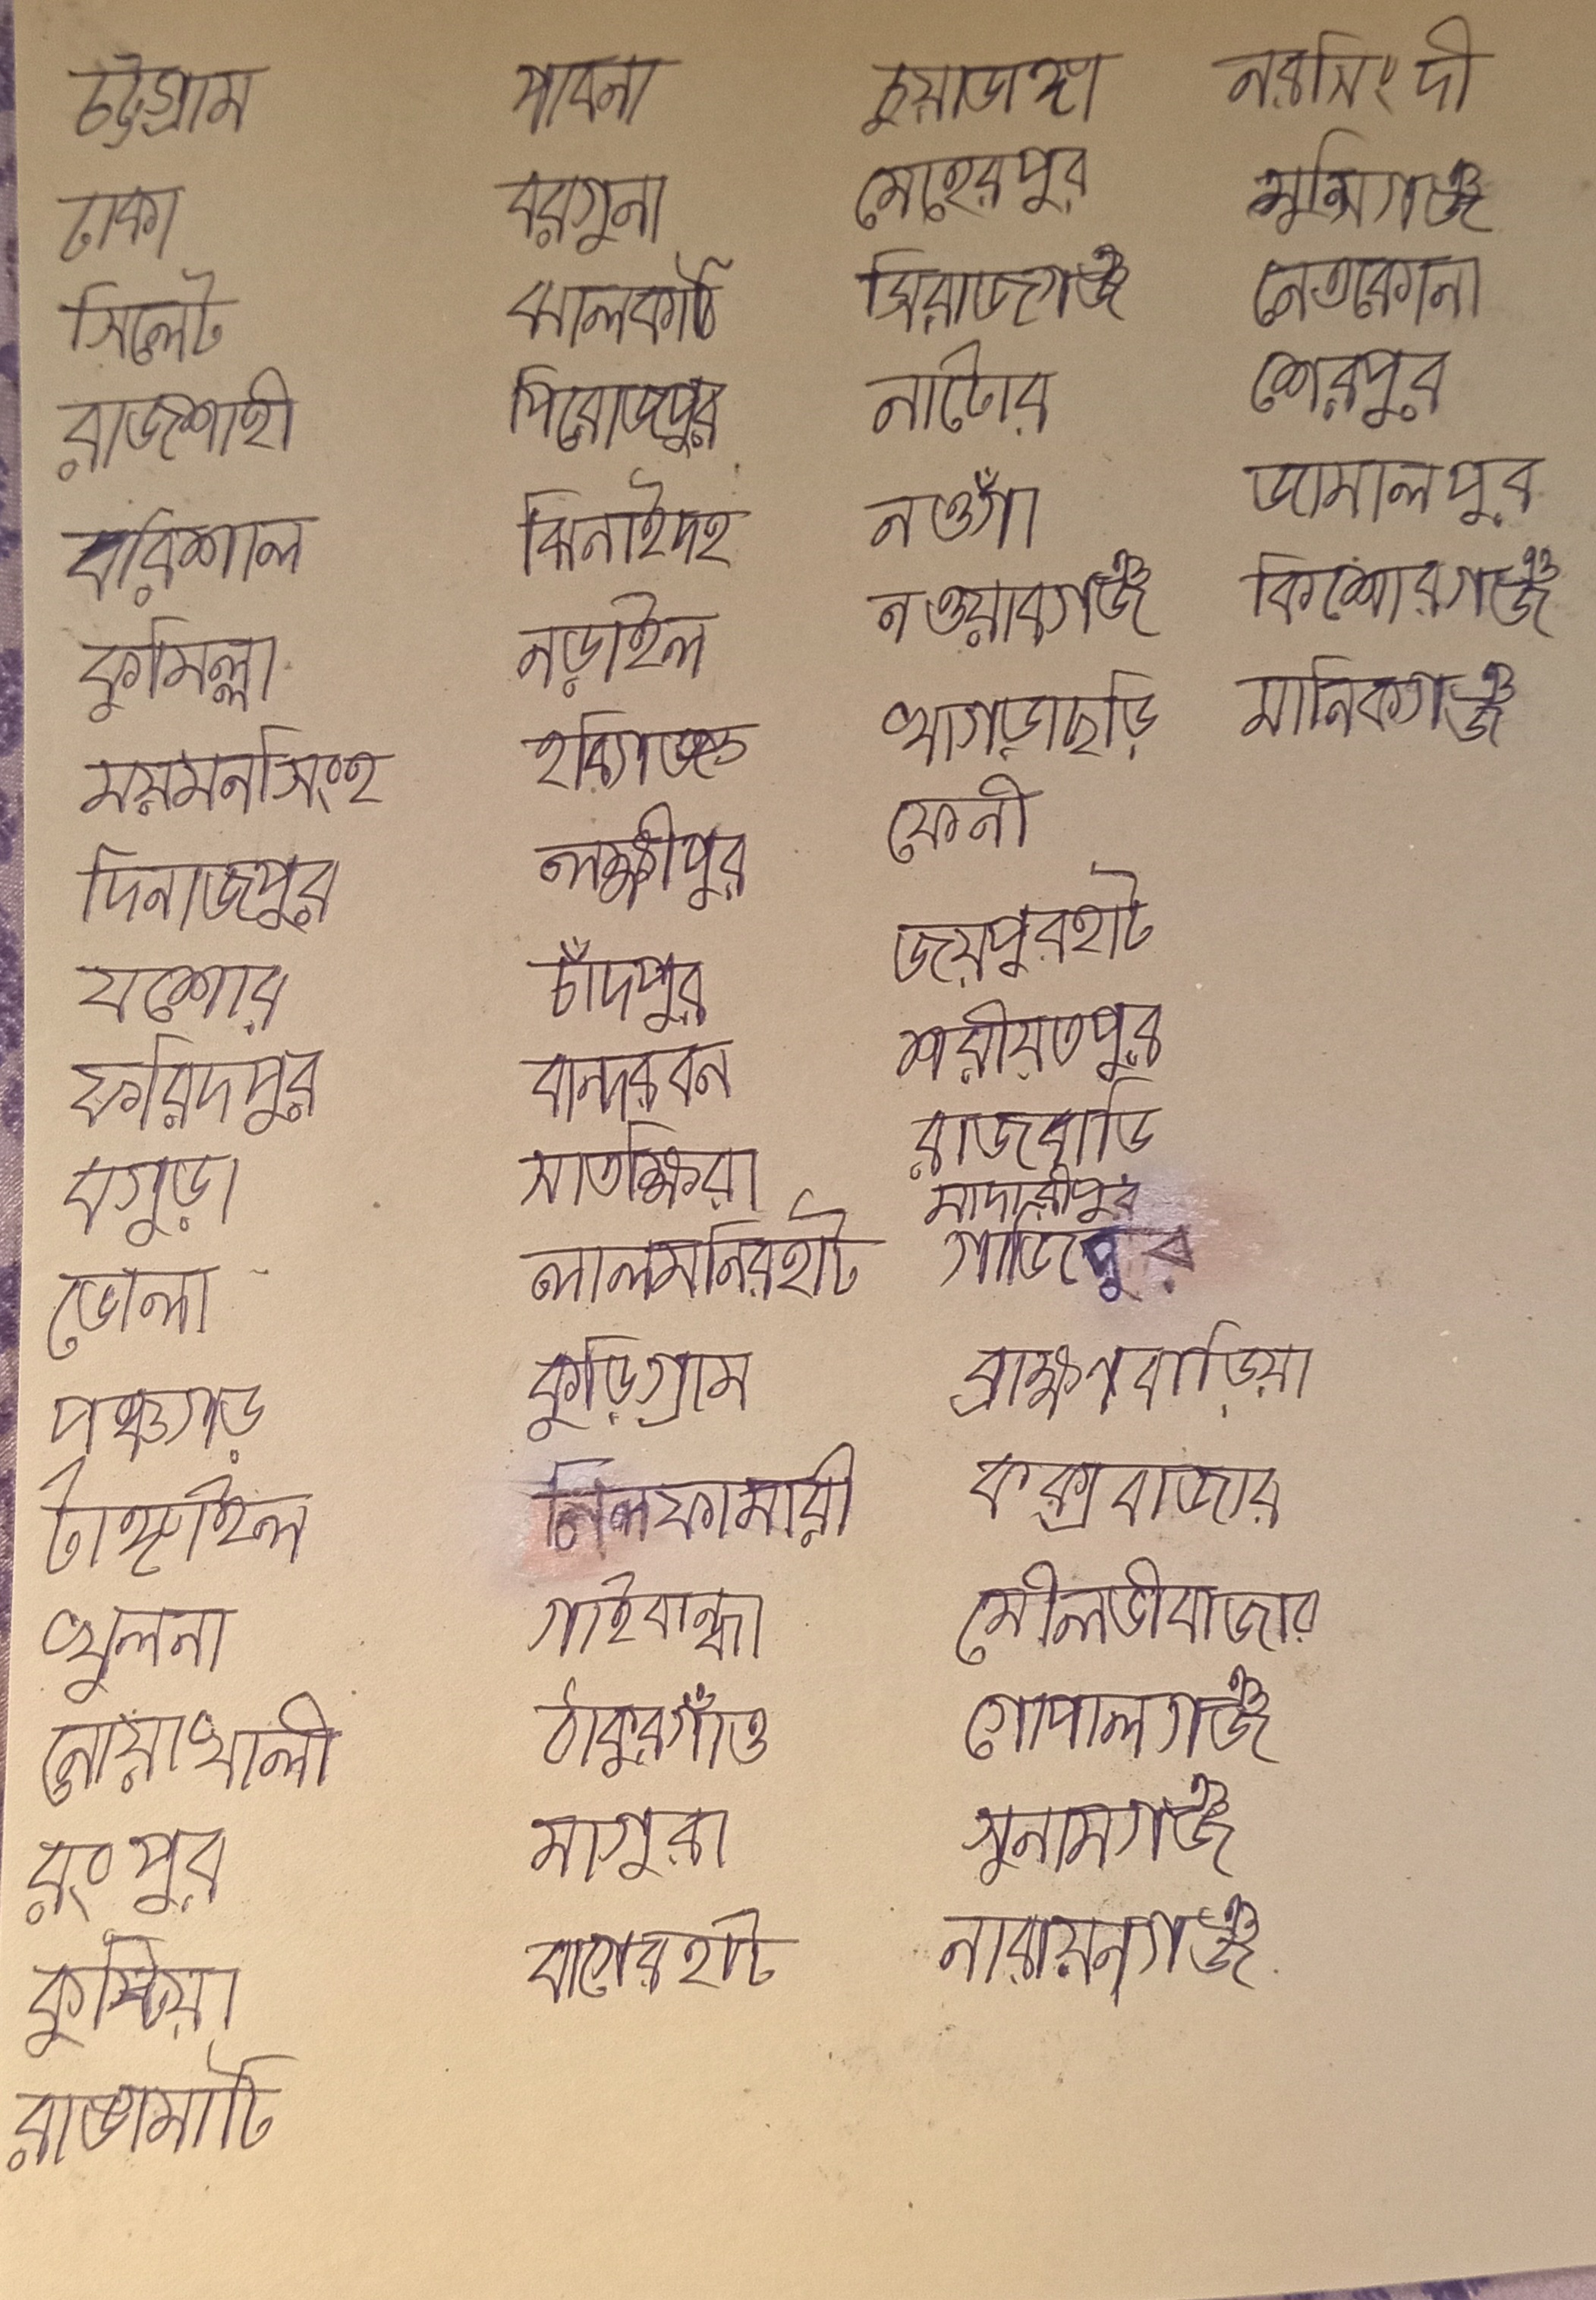 চট্টগ্রাম
ঢাকা
সিলেট
রাজশাহী
বরিশাল
কুমিল্লা
ময়মনসিংহ
দিনাজপুর
যশোর
ফরিদপুর
বগুড়া
ভোলা
পঞ্চগড়
টাঙ্গাইল
খুলনা
নোয়াখালী
রংপুর
কুষ্টিয়া
রাঙামাটি
পাবনা
বরগুনা
ঝালকাঠি
পিরোজপুর
ঝিনাইদহ
নড়াইল
হবিগঞ্জ
লক্ষীপুর
চাঁদপুর
বান্দরবন
সাতক্ষিরা
লালমনিরহাট
কুড়িগ্রাম
নিলফামারী
গাইবান্ধা
ঠাকুরগাঁও
মাগুরা
বাগেরহাট
চুয়াডাঙ্গা
মেহেরপুর
সিরাজগঞ্জ
নাটোর
নওগাঁ
নওয়াবগঞ্জ
খাগড়াছড়ি
ফেনী
জয়পুরহাট
শরীয়তপুর
রাজবাডি
মাদারীপুর
গাজিপুর
ব্রাক্ষণবাড়িয়া
কক্সবাজার
মৌলভীবাজার
গোপালগঞ্জ
সুনামগঞ্জ
নারায়নগঞ্জ
নরসিংদী
মুন্সিগঞ্জ
নেত্রকোনা
শেরপুর
জামালপুর
কিশোরগঞ্জ
মানিকগঞ্জ